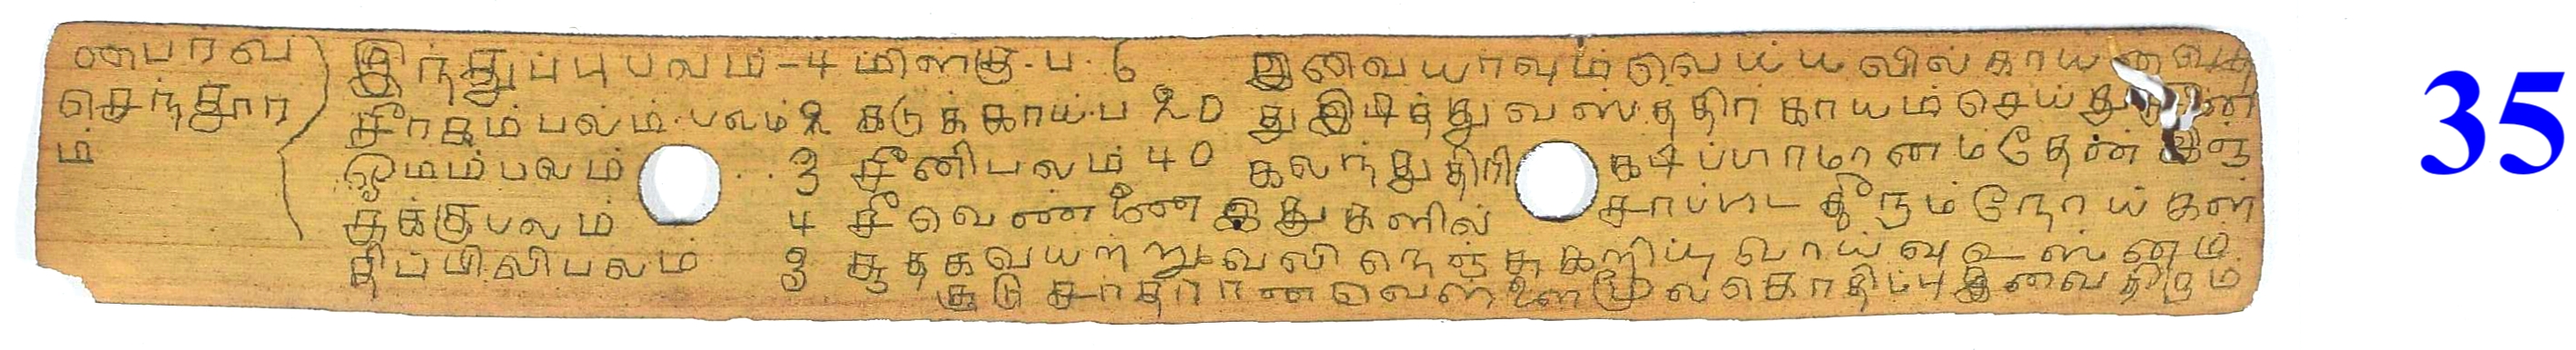 ணபர்வ இந்துப்புபலம்-4 மிளகு.ப.6 இவையாவும்வெய்யலில்காய
செந்தூர சீரகம்பலம்.பலம்2 கடுக்காய்.ப20 துஇடித்துவஸ்த்திரகாயம்செய்து
ம் ஓமம்பலம் 3 சீனிபலம்40 கலந்துதிரி கடிப்பரமானம்தேன்
சுக்குபலம் 4 சீவெண்ணை இதுகளில் சாப்பிட தீரும்நோய்கள்
திப்பிலிபலம் 3 சூதகவயற்றுவலிநெஞ்சுகறிப்புவாய்வுஉஸ்ணம்
சூடு சாதாரனவெள்ளைமூலகொதிப்புஇவைதிரும்
35